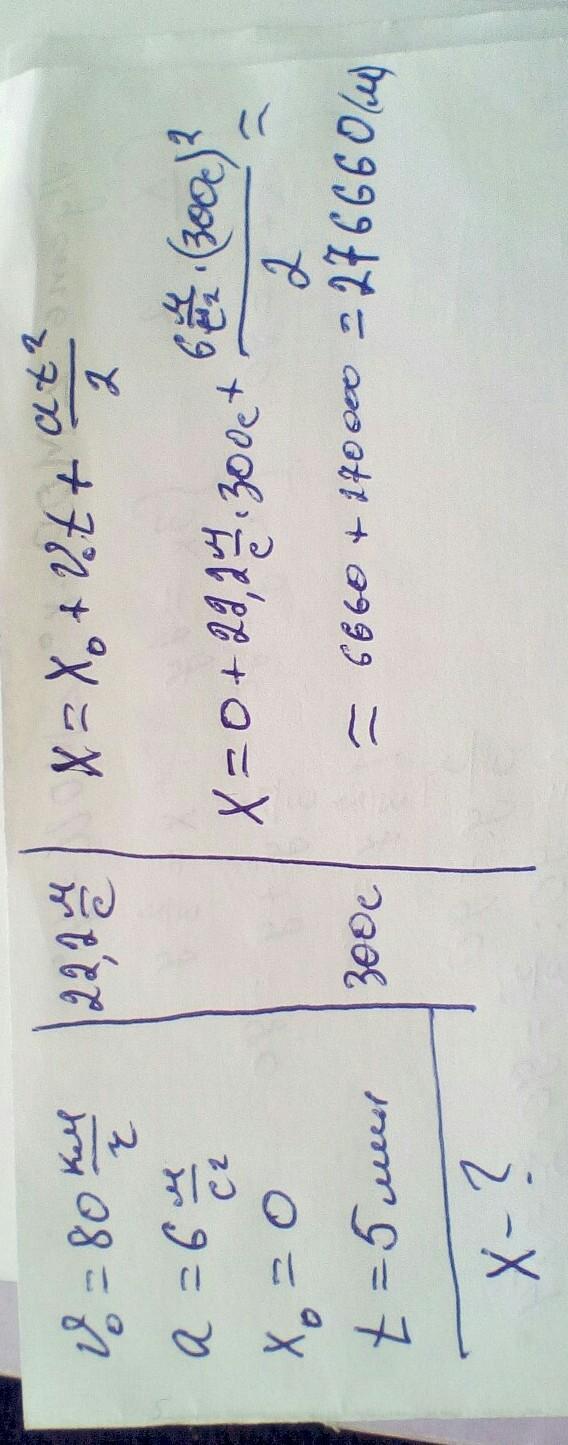 v₀ = 80 км/ч
a = 6 м/с²
x₀ = 0
t = 5 мин
x - ?
22,2 м/с
300с
x = x₀ + v₀t + at²/2
x = 0 + 22,2 м/с · 300с + 6 м/с² · (300с)²/2 =
= 6660 + 270000 = 276660 (м)